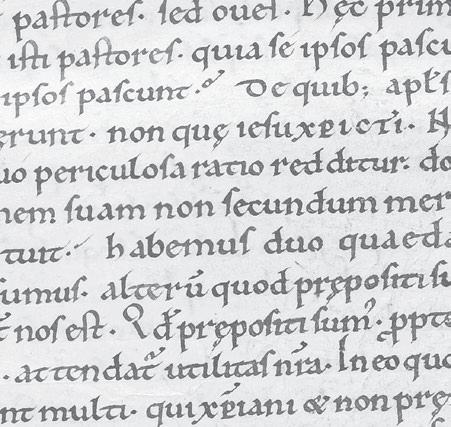 pastores. sed oues. Hęc prim
isti pastores. quia se ipsos pascu
ipsos pascunt. De quib; apłs
erunt. non quę iesuxpicti.
uo periculosa ratio redditur. do
nem suam non secundum mer
tuit. habemus duo quaeda
sumus. alterū quod prępositi su
nos est. Qđ prępositi sum᷒. ppte
. attendat utilitas nr̄a. In eo quo
nt multi. qui xp̄iani & non pre